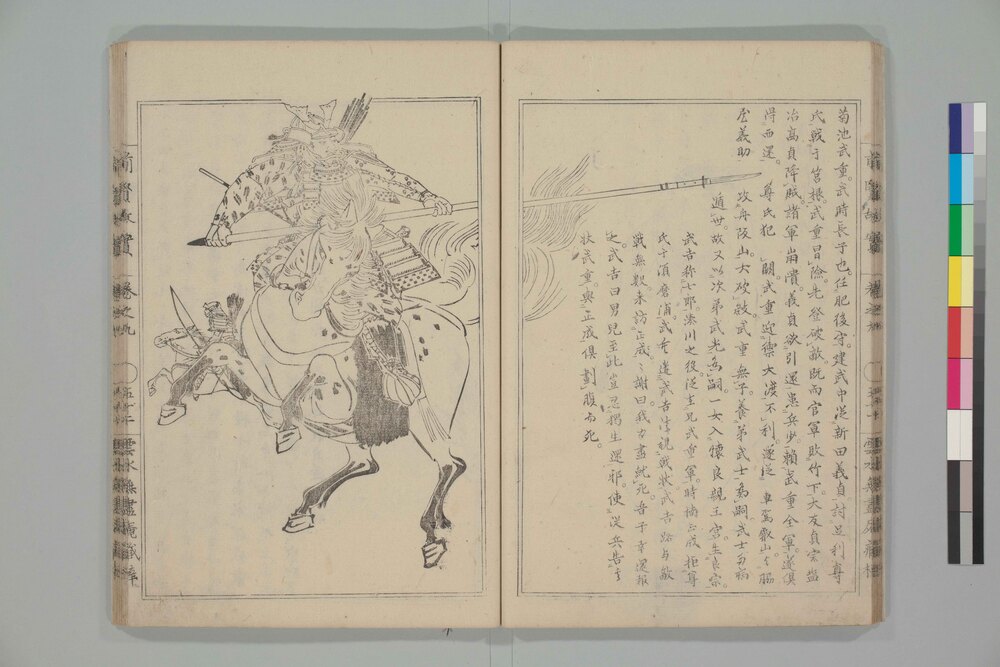 菊池武重。武時長子也。任肥後守。建武中從新田義貞。討足利尊
氏戰于筥根。武重冒險先登破敵。既而官軍敗竹下。大友貞宗鹽
冶高貞降賊。諸軍崩潰。義貞欲引還患兵少。賴武重全軍遂俱
得西還。尊氏犯闕。武重迎禦大渡。不利。遂從車駕叡山。與脇
屋義助攻舟阪山。大破敵。武重無子。養弟武士為嗣。武士
遁世。故又以次弟武光為嗣。一女入懷良親王宮。生良宗。
武吉稱七郎。湊川之役。從主兄武重軍。時楠正成拒尊
氏于須磨浦。武重遣武吉覘戰狀。武吉路與敵
戰無數。來訪正成。正成謝曰。我力盡就死。吾子幸還報
之。武吉曰。男兒至此。豈忍獨生還邪。使從兵告其
狀武重。與正成俱割腹而死。
前賢故實
卷之九
雲水無盡庵藏梓